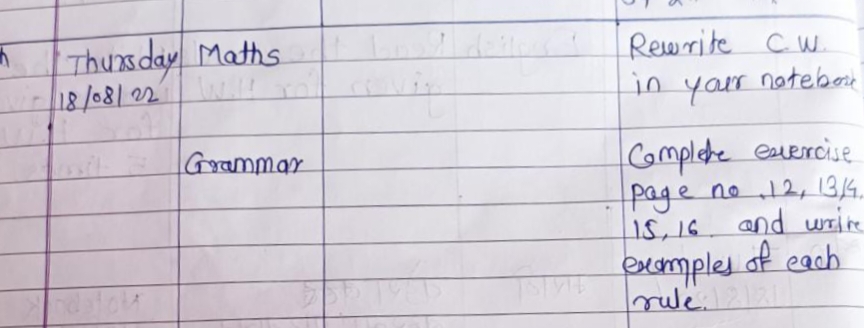 Thursday Maths Rewrite C.W.
18/08/22 in your notebook
Grammar Complete exercise
page no. 12, 13, 14.
15, 16. and write
examples of each
rule.